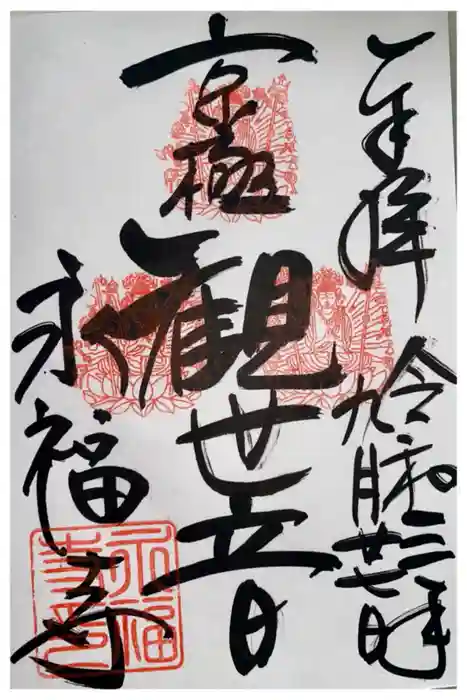 奉拝
令和三年
九月廿七日
京極
観世音
永福寺
永福
寺印